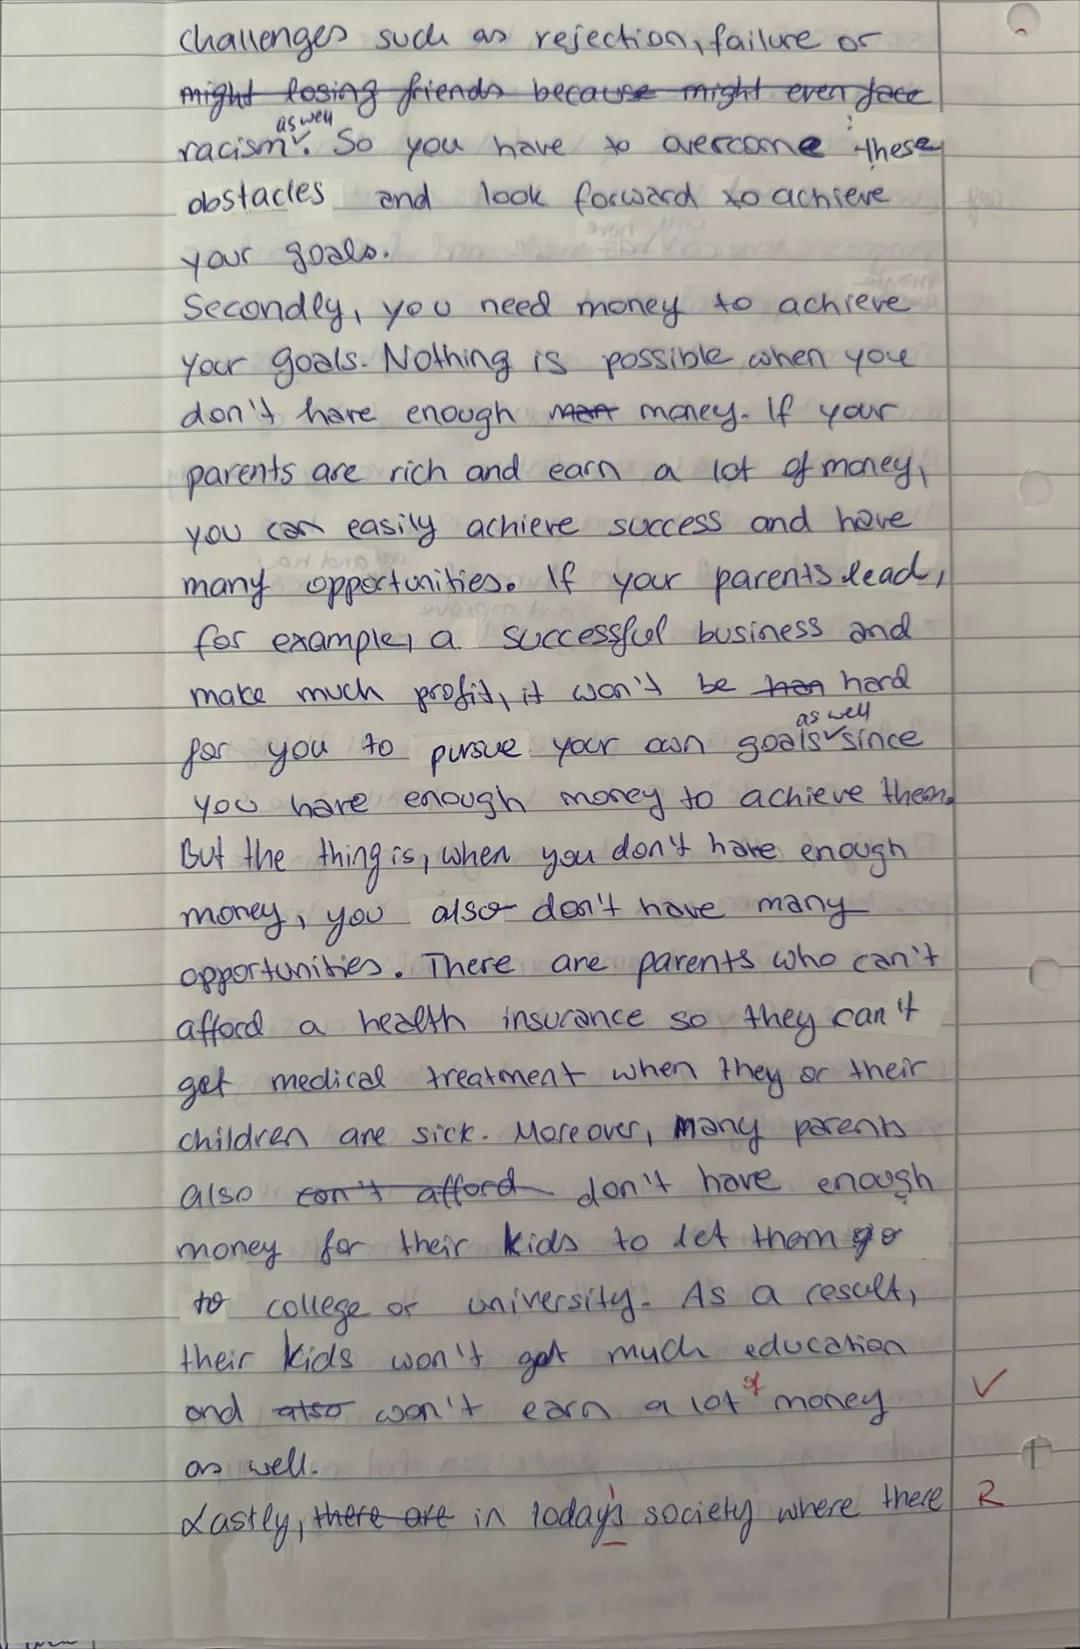 challenges such as rejection, failure or
might losing friends because might even face
as well
racism✓. So you have to overcome these
obstacles and look forward to achieve
your goals.
Secondly, you need money to achieve
your goals. Nothing is possible when you
don't have enough money. If your
parents are rich and earn a lot of money,
you can easily achieve success and have
many opportunities. If your parents lead,
for example, a successful business and
make much profit, it won't be hard
as well
for you to pursue your own goals✓since
you have enough money to achieve them.
But the thing is, when you don't have enough
money, you also don't have many
opportunities. There are parents who can't
afford a health insurance so they can't
get medical treatment when they or their
children are sick. Moreover, many parents
also can't afford don't have enough
money for their kids to let them go
to college or university. As a result,
their kids won't get much education
of
and also won't earn a lot money ✓
as well. +
Lastly, there are in today's society where there R